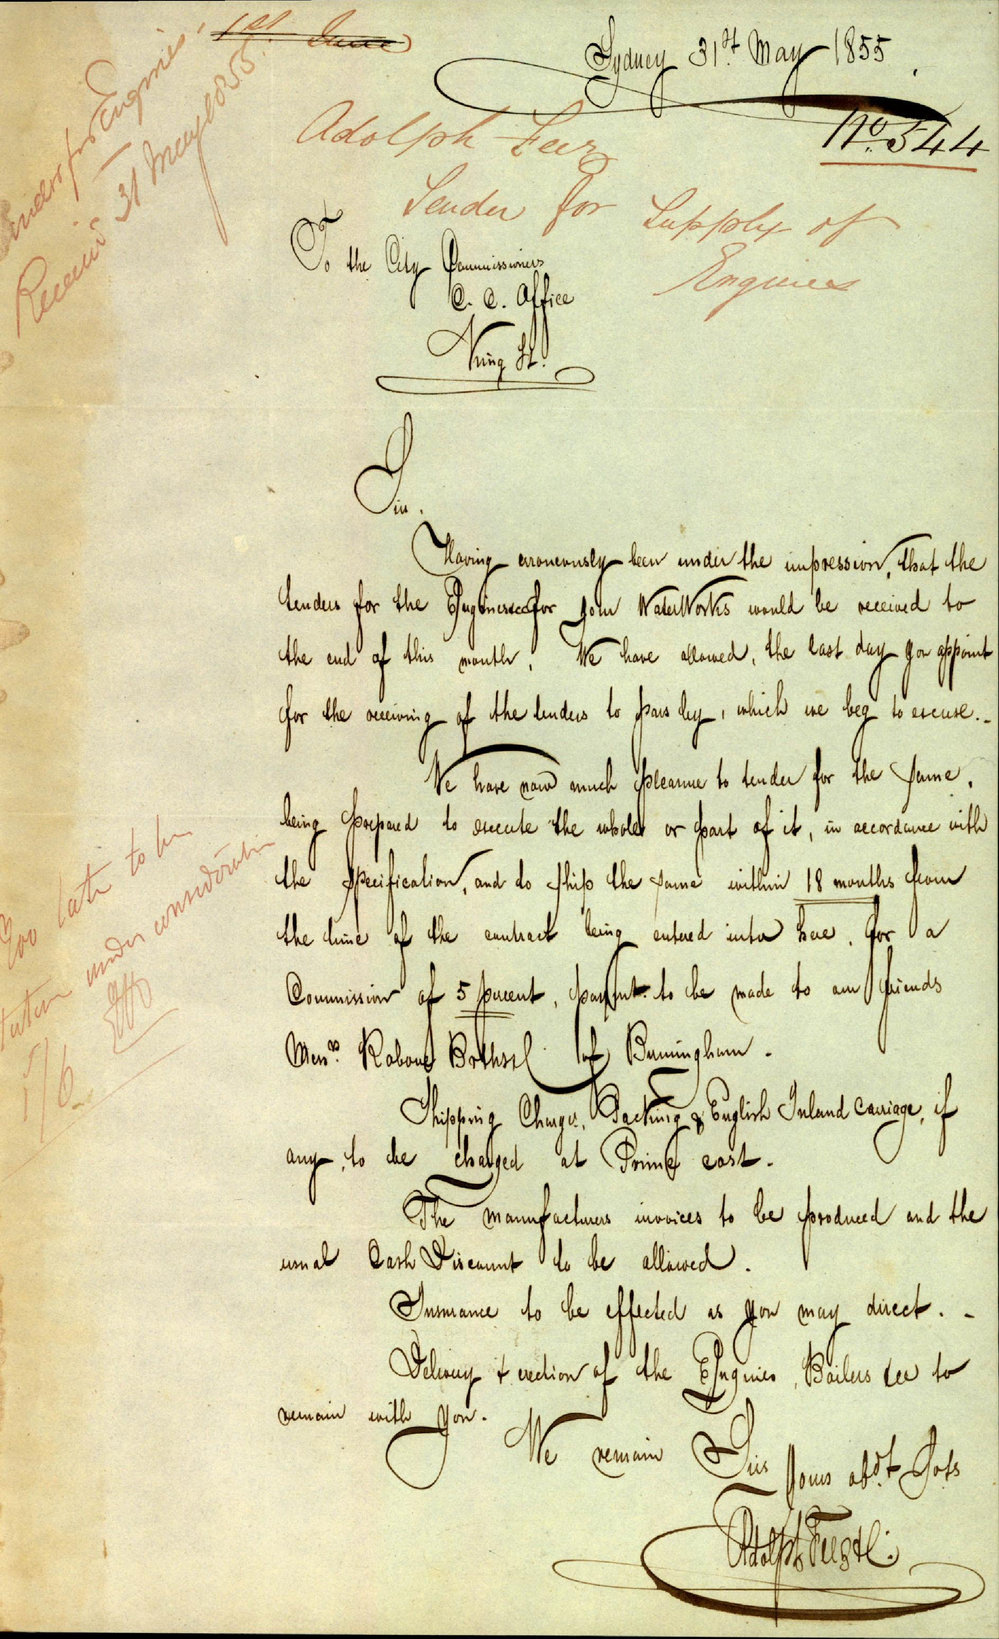 1st June
Sydney 31st May 1855.
No. 544
Tenders for Engines.
Received 31 May 1855.
Adolph Feez
Tender for Supply of
Engines
To the City Commissioners
C. C. Office
King St.
Sir.
Having erroneously been under the impression, that the
tenders for the Engines &c for your WaterWorks would be received to
the end of this month, We have allowed, the last day you appoint
for the receiving of the tenders to pass by, which we beg to excuse._
We have now much pleasure to tender for the same,
being prepared to execute the whole or part of it, in accordance with
the specification, and to ship the same within 18 months from
the time of the contract being entered into here, for a
Commission of 5 percent, paymt. to be made to our friends
Messrs. Rabone Brothers of Birmingham.
Shipping Charges, Packing & English Inland carriage, if
any, to be charged at Prime cost.
The manufacturers invoices to be produced and the
usual Cash Discount to be allowed.
Insurance to be effected as you may direct. _
Delivery & erection of the Engines, Boilers &c to
remain with you.
We remain Sirs Yours obdt Svts
Adolph Feez &C.
Too late to be
taken under consideration
1/6